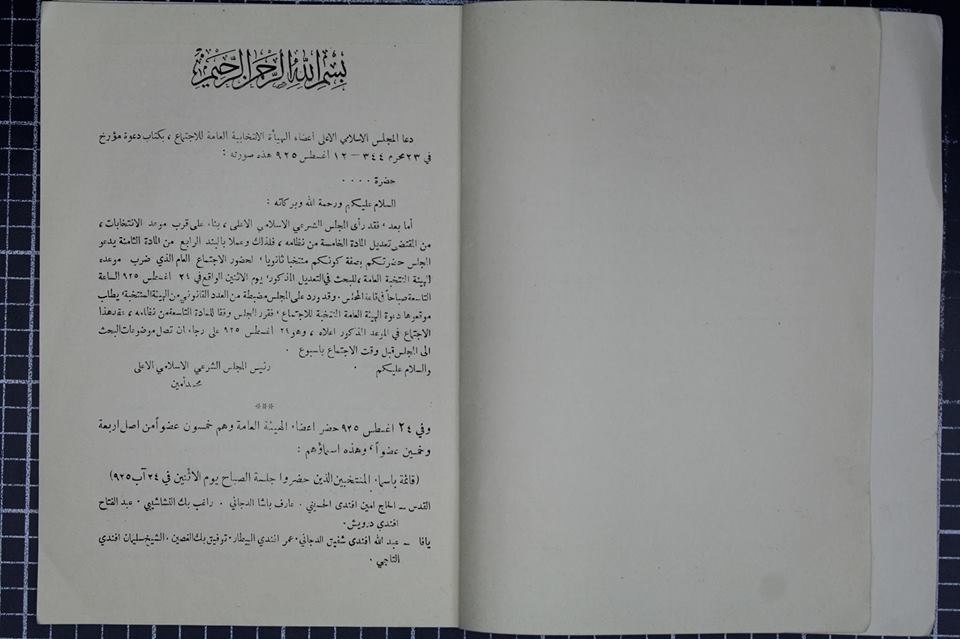 بسم الله الرحمن الرحيم
دعا المجلس الاسلامي الاعلى اعضاء الهيأة الانتخابية العامة للاجتماع ، بكتاب دعوة مؤرخ
في ٢٣ محرم ٣٤٤ — ١٢ اغسطس ٩٢٥ هذه صورته :
حضرة ٠٠٠٠
السلام عليكم ورحمة الله وبركاته :
أما بعد ، فقد رأى المجلس الشرعي الاسلامي الاعلى ، بناء على قرب موعد الانتخابات ،
من المقتضى تعديل المادة الخامسة من نظامه ، فلذلك وعملا بالبند الرابع من المادة الثامنة يدعو
المجلس حضرتكم بصفة كونكم منتخبا ثانويا ، لحضور الاجتماع العام الذي ضرب موعده
الهيئة المنتخبة العامة ، للبحث في التعديل المذكور ، يوم الاثنين الواقع في ٢٤ اغسطس ٩٢٥ الساعة
التاسعة صباحاً في قاعة المجلس . وقد ورد على المجلس مضبطة من العدد القانوني من الهيئة المنتخبة ، يطلب
موقعوها دعوة الهيئة العامة المنتخبة للاجتماع ، فقرر المجلس وفقا للمادة التاسعة من نظامه ، عقد هذا
الاجتماع في الموعد المذكور اعلاه ، وهو ٢٤ اغسطس ٩٢٥ على رجاء ان تصل موضوعات البحث
الى المجلس قبل وقت الاجتماع باسبوع .
والسلام عليكم . رئيس المجلس الشرعي الاسلامي الاعلى
محمد أمين
***
وفي ٢٤ اغسطس ٩٢٥ حضر اعضاء الهيئة العامة وهم خمسون عضواً من اصل اربعة
وخمسين عضواً ، وهذه اسماؤهم :
(قائمة باسماء المنتخبين الذين حضروا جلسة الصباح يوم الاثنين في ٢٤ آب ٩٢٥)
القدس — الحاج امين افندي الحسيني . عارف باشا الدجاني . راغب بك النشاشيبي . عبد الفتاح
افندي درويش .
يافا — عبد الله افندي شفيق الدجاني . عمر افندي البيطار . توفيق بك الغصين . الشيخ سليمان افندي
التاجي .